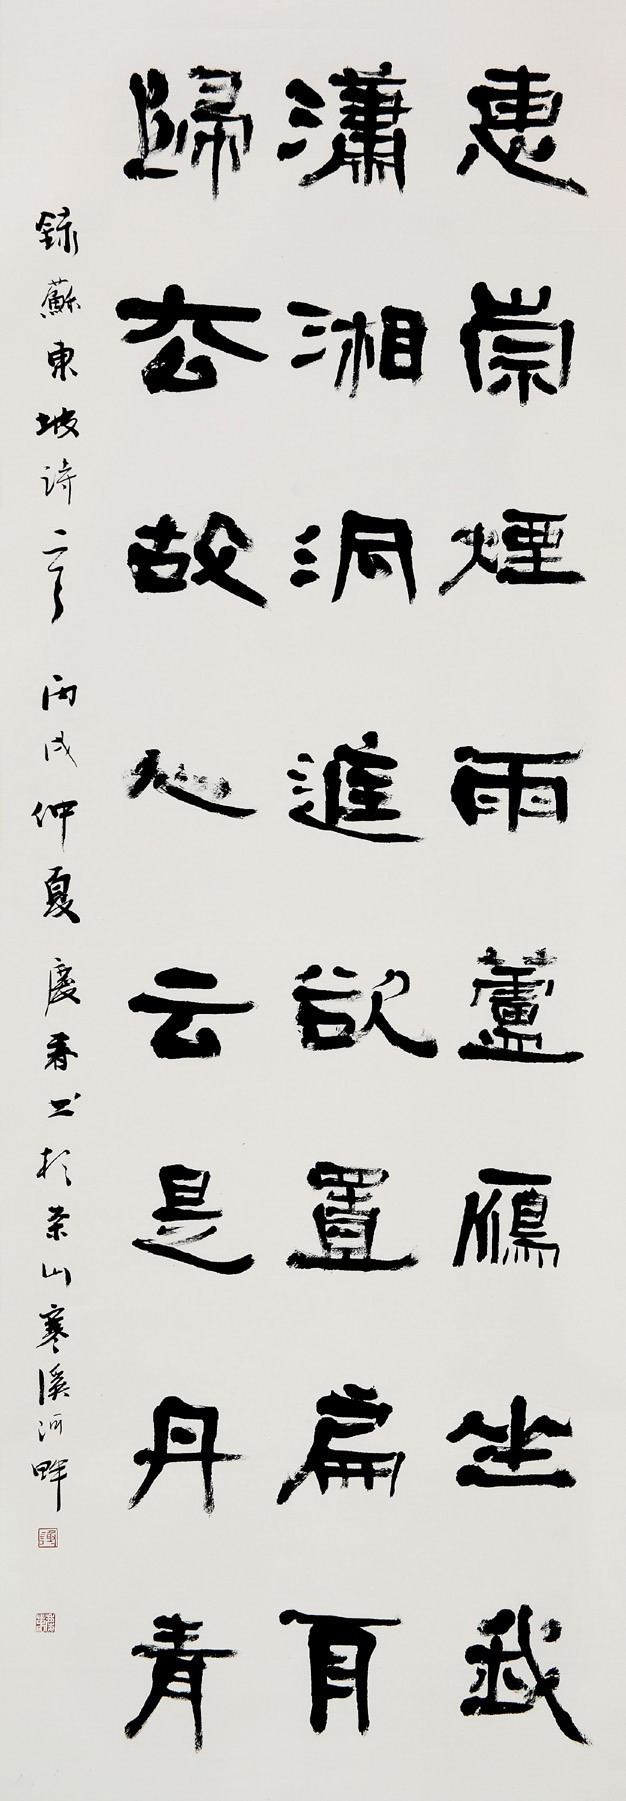 惠崇煙雨蘆鴈坐我
瀟湘洞進欲置扁舟
歸去故人云是丹青
錄蘇東坡詩一首 丙戌仲夏慶春书於榮山寒溪河畔